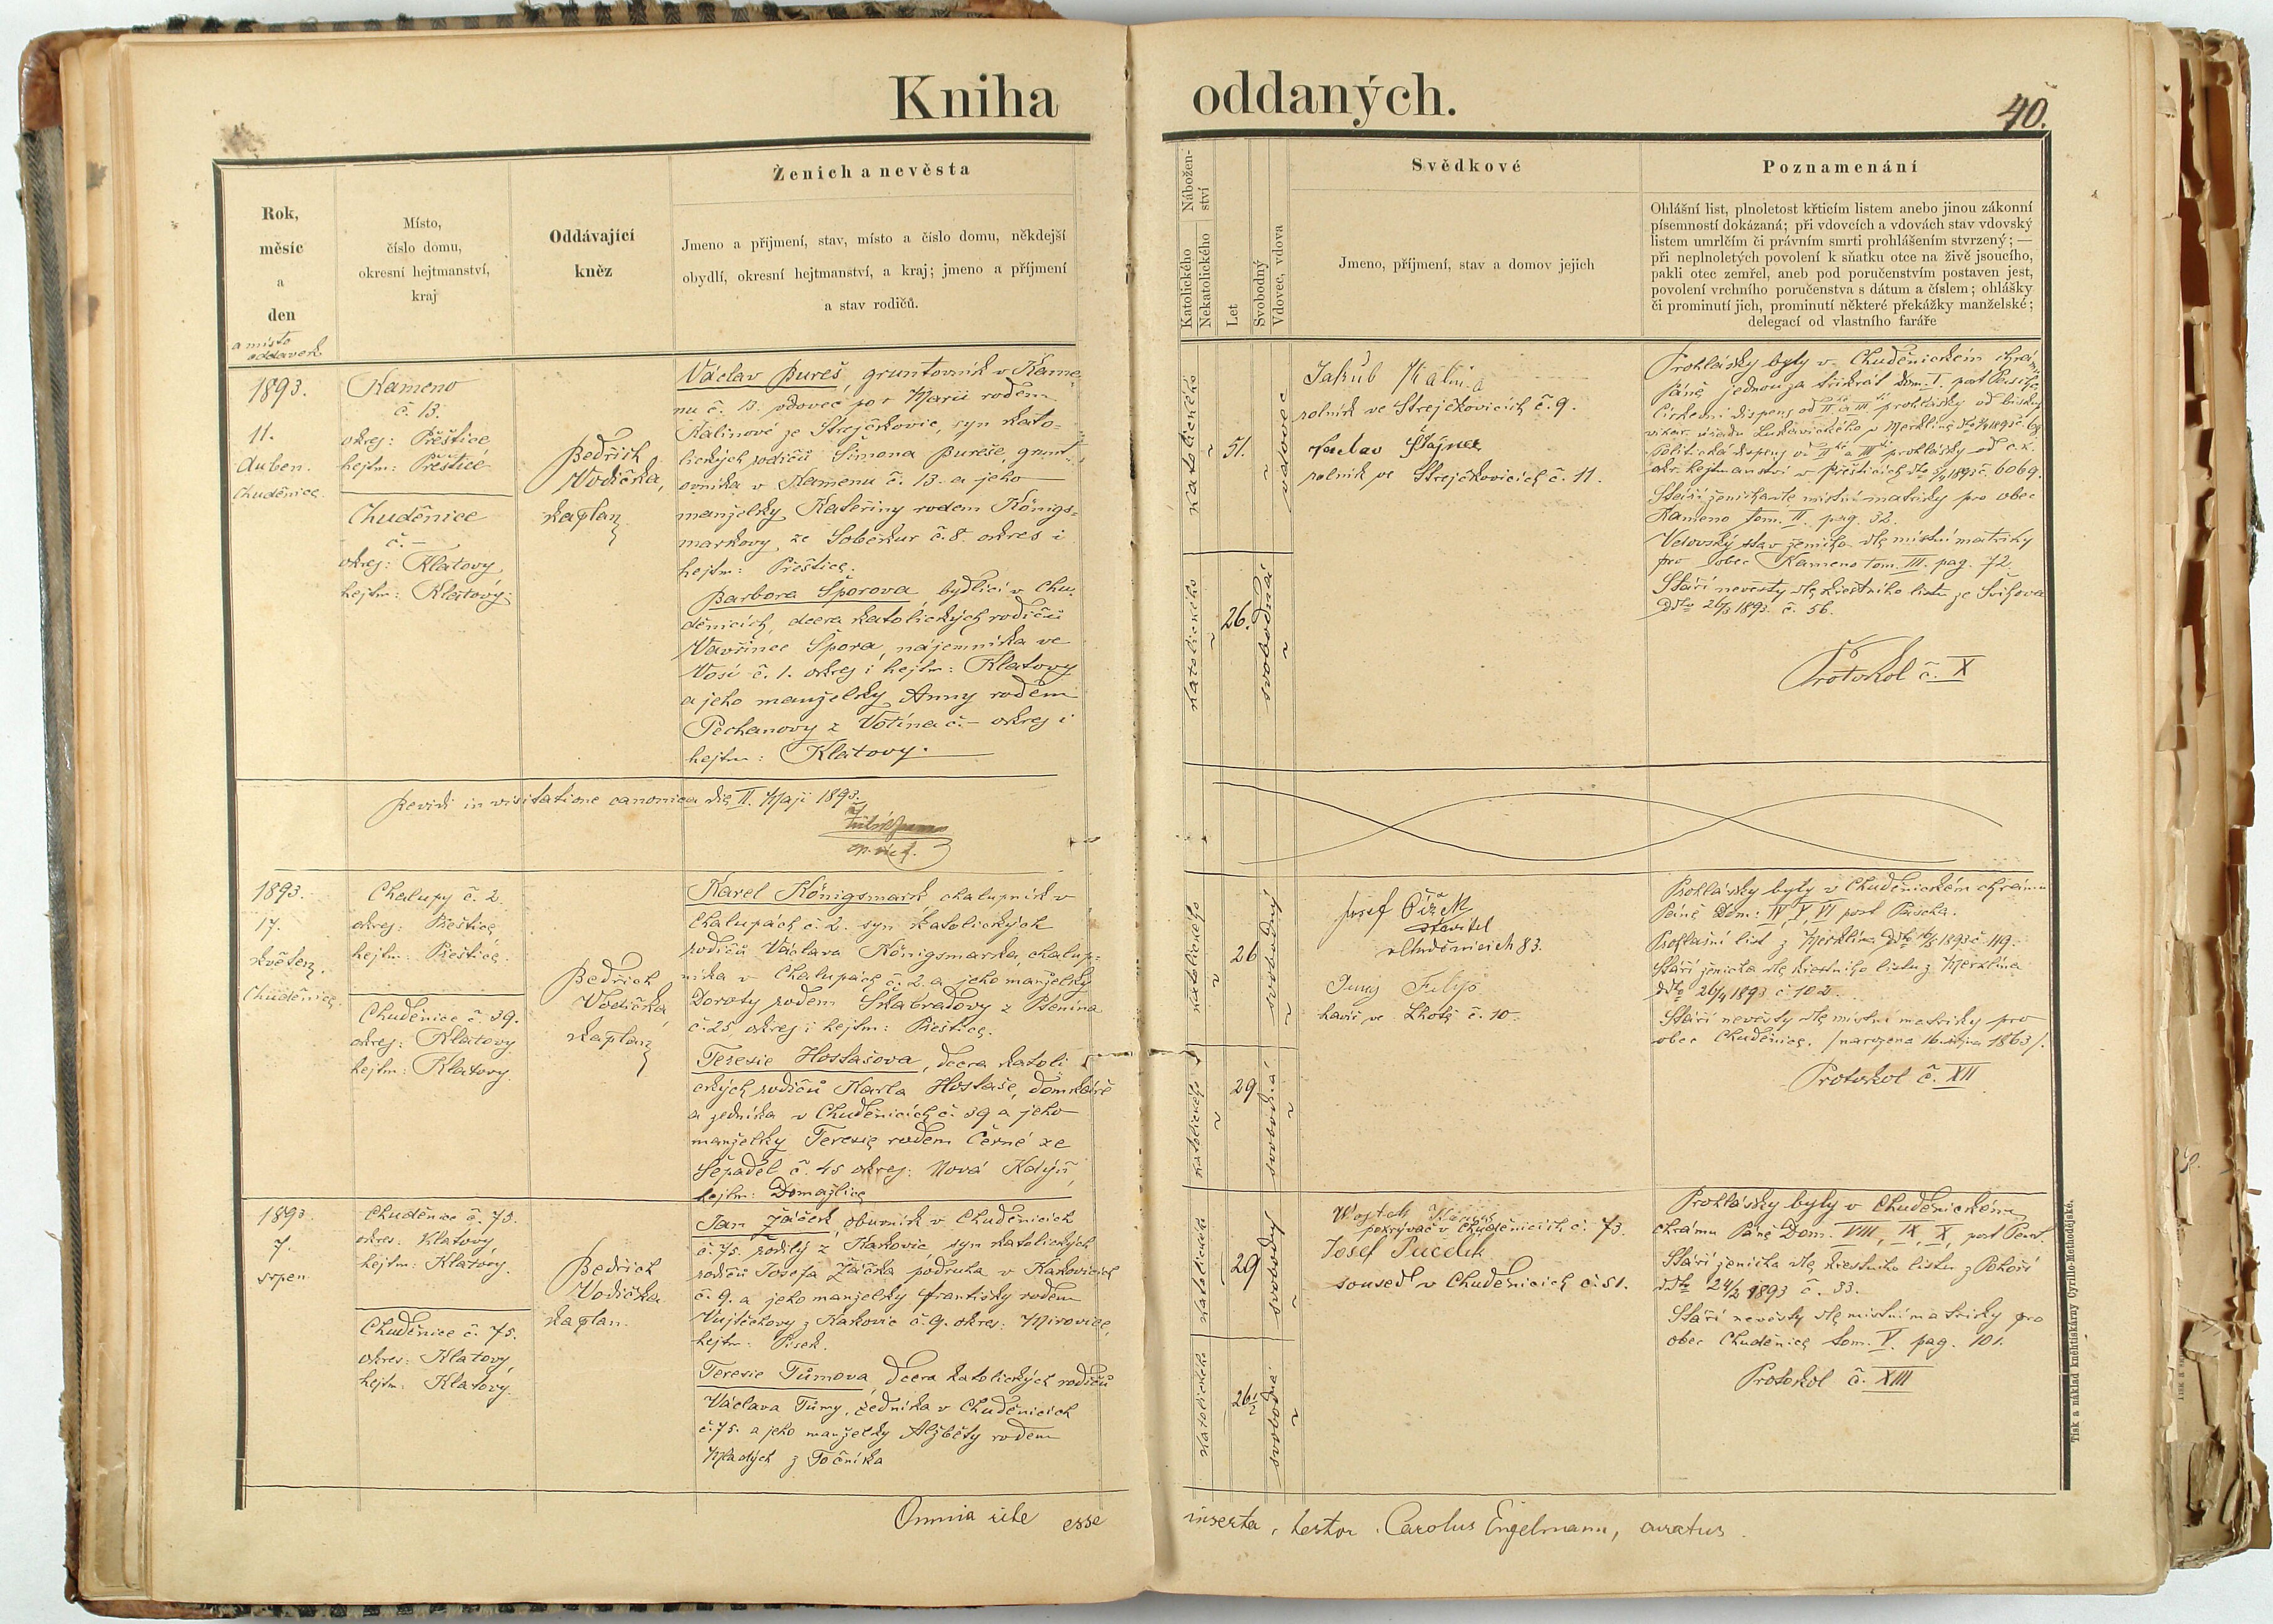 Kniha oddaných.
40.
Rok,
měsíc
a
den
a místo
oddavek
Místo,
číslo domu,
okresní hejtmanství,
kraj
Oddávající
kněz
Ženich a nevěsta
Jmeno a příjmení, stav, místo a číslo domu, někdejší
obydlí, okresní hejtmanství, a kraj; jmeno a příjmení
a stav rodičů.
Nábožen-
ství
Katolického
Nekatolického
Let
Svobodný
Vdovec, vdova
Svědkové
Jmeno, příjmení, stav a domov jejich
Poznamenání
Ohlášní list, plnoletost křticím listem anebo jinou zákonní
písemností dokázaná; při vdovcích a vdovách stav vdovský
listem umrlčím či právním smrti prohlášením stvrzený; —
při neplnoletých povolení k sňatku otce na živě jsoucího,
pakli otec zemřel, aneb pod poručenstvím postaven jest,
povolení vrchního poručenstva s dátum a číslem; ohlášky
či prominutí jich, prominutí některé překážky manželské;
delegací od vlastního faráře
1893.
11.
duben.
Chuděnice.
Kameno
č. 13.
okres: Přeštice
hejtm: Přeštice
Chuděnice
č. —
okres: Klatovy
hejtm: Klatovy.
Bedřich
Vodička,
kaplan
Václav Bureš, gruntovník v Kame-
nu č. 13. vdovec po † Marii rodem
Kalinové ze Strejčkovic, syn kato-
lických rodičů Šimona Bureše, grunt-
ovníka v Kamenu č. 13. a jeho
manželky Kateřiny rodem Königs-
markovy ze Soběkur č. 8. okres i
hejtm: Přeštice.
Barbora Šporova, bydlící v Chu-
děnicích, dcera katolických rodičů
Vavřince Špora, nájemníka ve
Vosí č. 1. okres i hejtm: Klatovy
a jeho manželky Anny rodem
Pechanovy z Votína č. — okres i
hejtm: Klatovy.
katolického
51.
vdovec
katolického
26.
svobodná
Jakub Kalina
rolník ve Strejčkovicích č. 9.
Václav Štajner
rolník ve Strejčkovicích č. 11.
Prohlášky byly v Chuděnickém chrámu
Páně jednou za třikrát Dom. I. post Pascha.
Církevní dispens od II. a III. prohlášky od biskup.
vikar. úřadu
Politická dispens v II. a III. prohlášky od c. k.
okr. hejtmanství v Přešticích dto 5/4 1893 č. 6069.
Stáří ženicha dle místní matriky pro obec
Kameno tom. II. pag. 32.
Vdovský stav ženicha dle místní matriky
pro obec Kameno tom. III. pag. 72.
Stáří nevěsty dle křestního listu ze Švihova
ddto 26/3 1893. č. 56.
Protokol č. X
Revidi in visitatione canonica die II. Maji 1893.
1893.
17.
květen.
Chuděnice.
Chalupy č. 2.
okres: Přeštice
hejtm: Přeštice.
Chuděnice č. 39.
okres: Klatovy
hejtm: Klatovy.
Bedřich
Vodička,
kaplan
Karel Königsmark, chalupník v
Chalupách č. 2. syn katolických
rodičů Václava Königsmarka, chalup-
níka v Chalupách č. 2. a jeho manželky
Doroty rodem Škabradovy z Ptenína
č. 25 okres i hejtm: Přeštice.
Terezie Hostašova, dcera katoli-
ckých rodičů Karla Hostaše, domkáře
a zedníka v Chuděnicích č. 39 a jeho
manželky Terezie rodem Černé ze
Sepadel č. 45 okres: Nová Kdyň,
hejtm: Domažlice
katolického
26
svobodný
katolického
29
svobodná
Josef Čížek
stavitel
v Chuděnicích 83.
Filip
havíř ve Lhotě č. 10.
Prohlášky byly v Chuděnickém chrámu
Páně Dom: IV, V, VI post Pascha.
Prohlašní list z Merklína ddto 16/5 1893 č. 119.
Stáří ženicha dle křestního listu z Merklína
ddto 26/4 1893 č. 102.
Stáří nevěsty dle místní matriky pro
obec Chuděnice. /narozena 16. října 1863/.
Protokol č. XII
1893.
7.
srpen
Chuděnice č. 75.
okres: Klatovy
hejtm: Klatovy.
Chuděnice č. 75.
okres: Klatovy,
hejtm: Klatovy.
Bedřich
Vodička
kaplan.
Jan Žáček, obuvník v Chuděnicích
č. 75. rodilý z Kakovic, syn katolických
rodičů Josefa Žáčka podruha v Kakovicích
č. 9. a jeho manželky Františky rodem
Vojtěchovy z Kakovic č. 9. okres: Mirovice,
hejtm: Písek.
Terezie Tůmova, dcera katolických rodičů
Václava Tůmy, zedníka v Chuděnicích
č. 75. a jeho manželky Alžběty rodem
Mladých z Točníka
katolického
29
svobodný
katolického
26 1/2
svobodná
Vojtěch
pokrývač v Chuděnicích č. 73.
Josef Pucelík
soused v Chuděnicích č. 51.
Prohlášky byly v Chuděnickém
chrámu Páně Dom. VIII, IX, X, post Pent.
Stáří ženicha dle křestního listu z Pohoří
ddto 24/2 1893 č. 33.
Stáří nevěsty dle místní matriky pro
obec Chuděnice tom. V. pag. 101.
Protokol č. XIII
Omnia rite esse inserta, testor. Carolus Engelmann, curatus.
Tisk a náklad knihtiskárny Cyrillo-Methodějské.